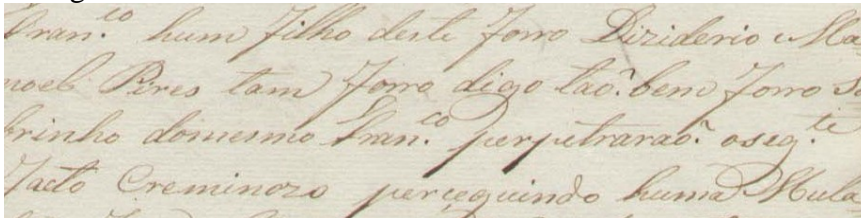 Fran.co hum Filho deste Forro Diziderio e Ma
noel Pires tam Forro digo taõ.bem Forro So
brinho domesmo Fran.co perpetraraõ. oseg.te
Facto Creminozo perceguindo huma Mula